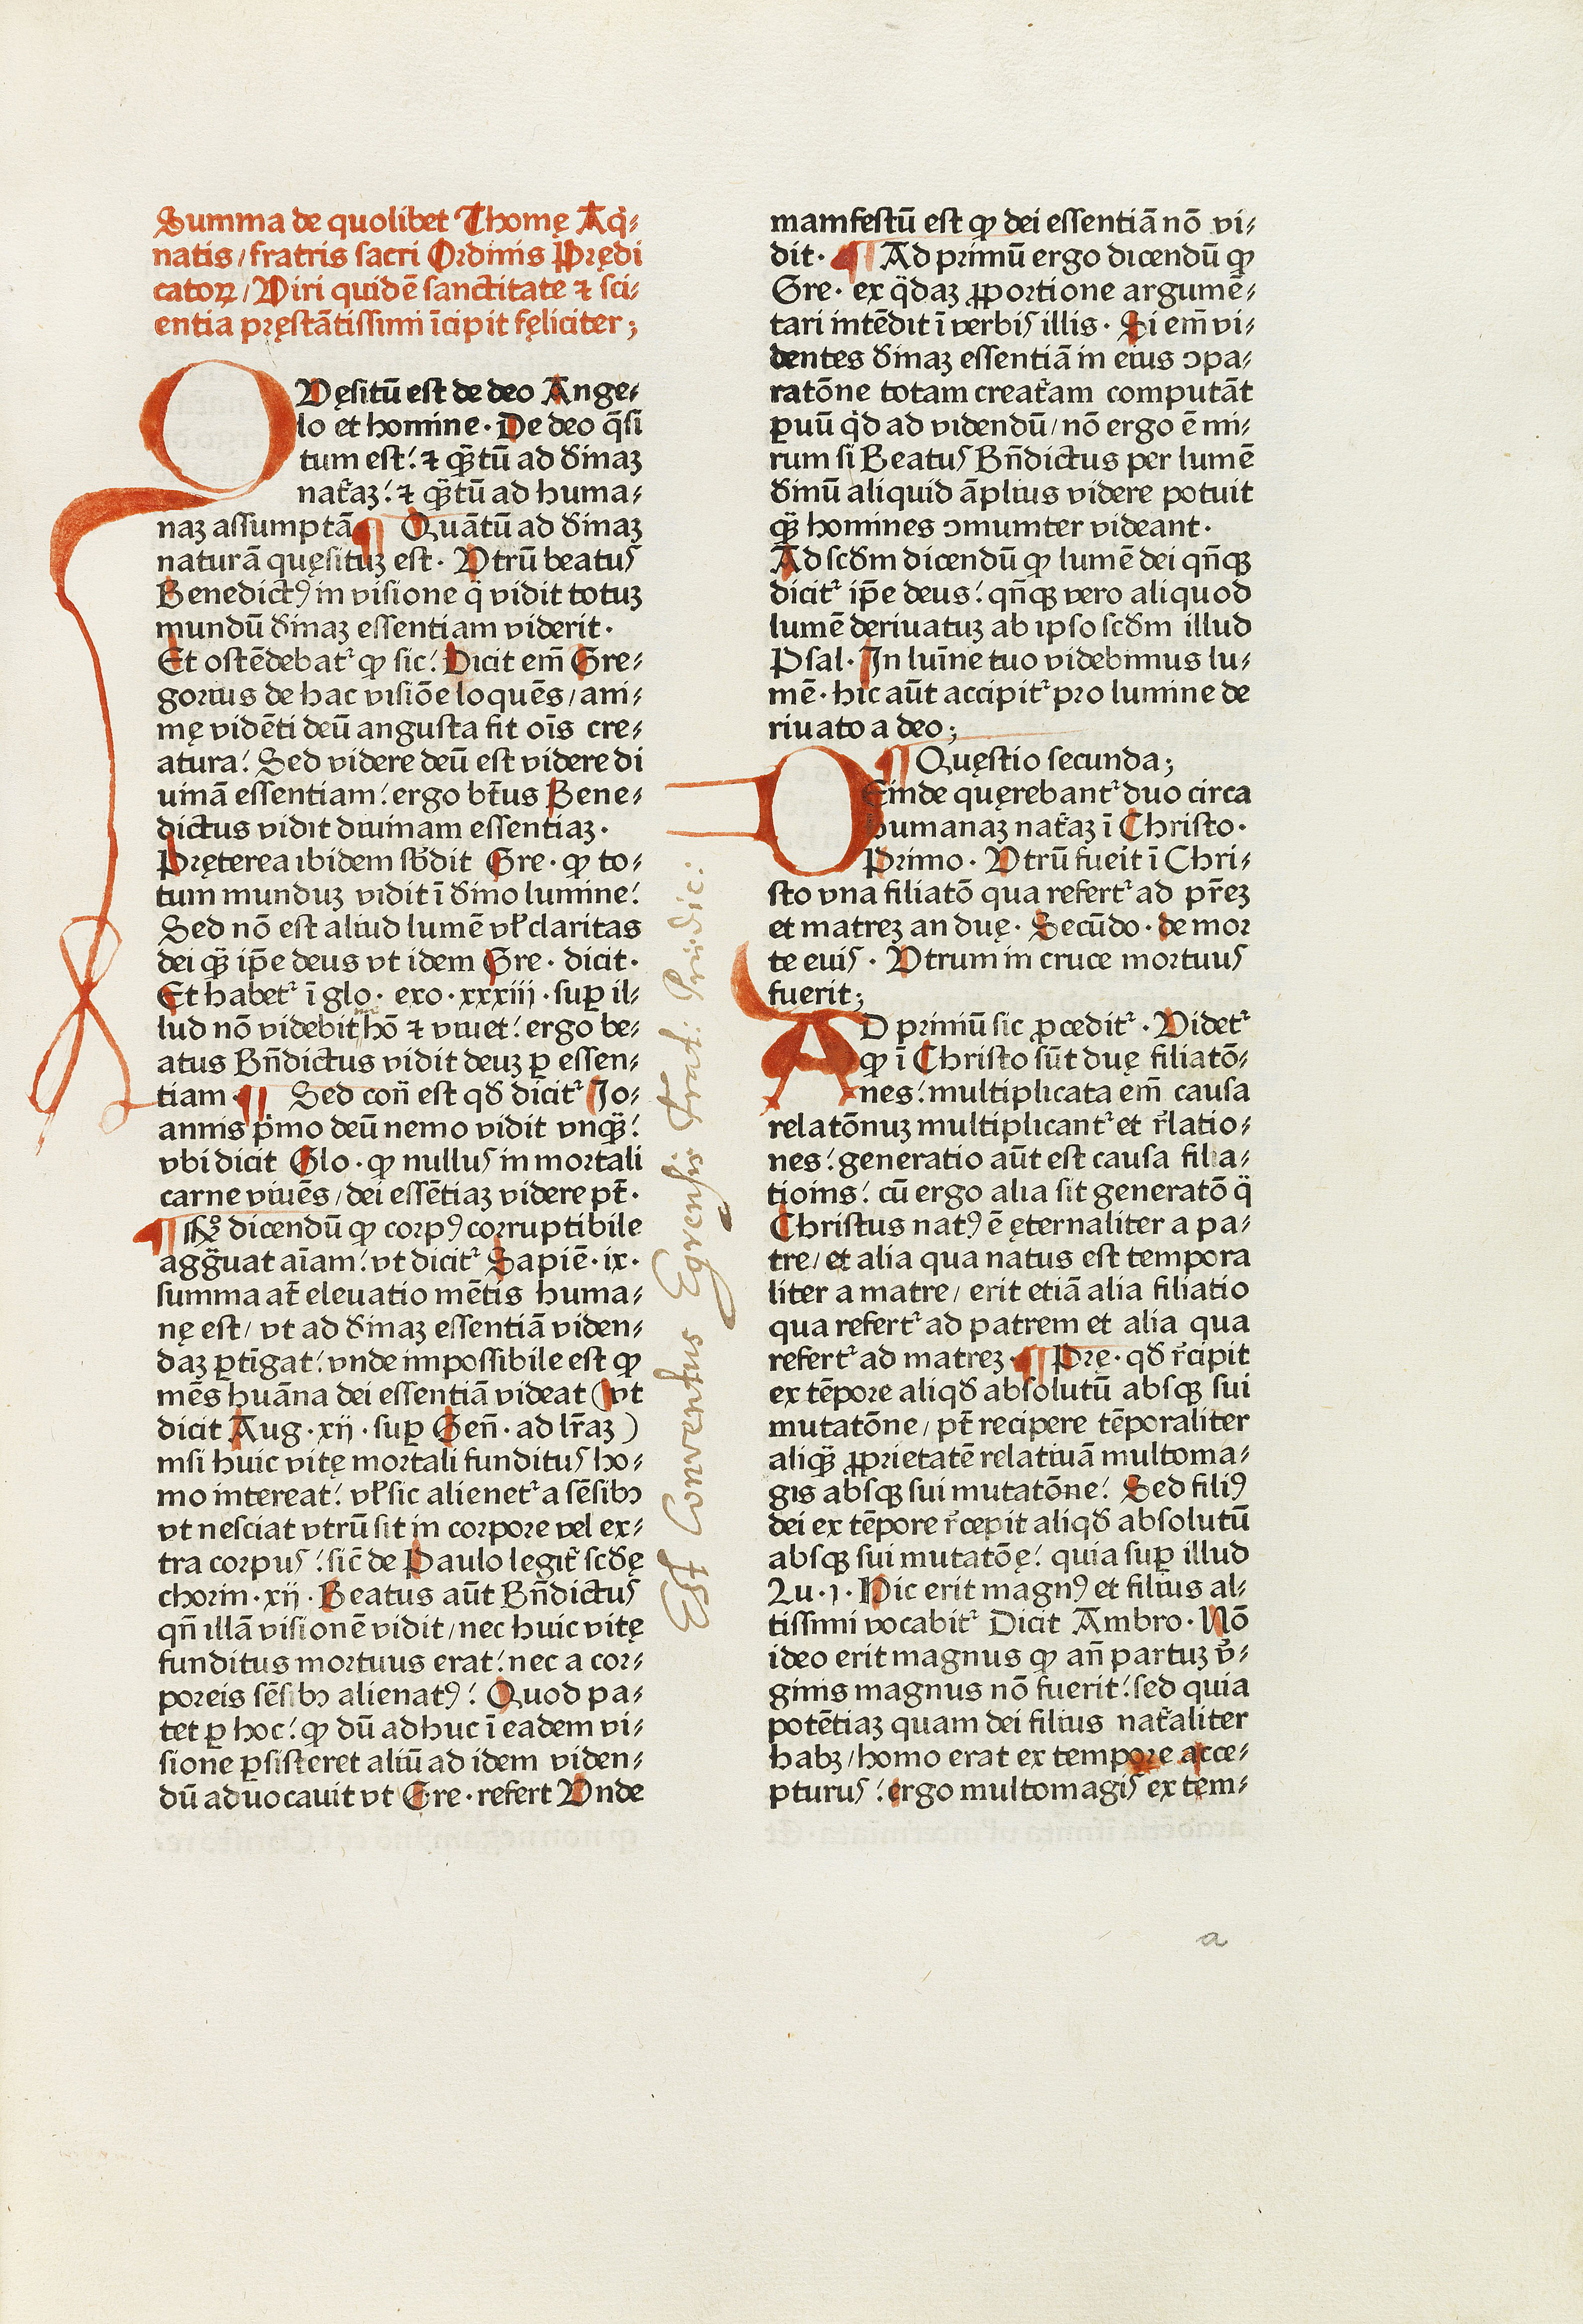 Summa de quolibet Thomę Aq̇-
natis/fratris sacri Ordinis Prędi
catoꝝ/Viri quidē sanctitate ⁊ sci-
entia pręstātissimi īcipit fęliciter;
QVęsitū est de deo Ange-
lo et homine· De deo q̄si
tum est: ⁊ qꝫ̄tū ad diuinaꝫ
nat̄aꝫ: ⁊ qꝫ̄tū ad huma-
naꝫ assumptā ¶ Quātū ad diuinaꝫ
naturā quęsituꝫ est· Vtrū beatus
Benedictꝰ in visione q̄ vidit totuꝫ
mundū diuinaꝫ essentiam viderit·
Et ostēdebat᷑ ꝙ sic: Dicit em̄ Gre-
gorius de hac visiōe loquēs/ani-
mę vidēti deū angusta fit oīs cre-
atura: Sed videre deū est videre di
uinā essentiam: ergo bt̄us Bene-
dictus vidit diuinam essentiaꝫ·
Pręterea ibidem sb̄dit Gre· ꝙ to-
tum munduꝫ vidit ī diuino lumine:
Sed nō est aliud lumē vł claritas
dei qꝫ̄ ip̄e deus vt idem Gre· dicit·
Et habet᷑ ī glo· exo·xxxiij·suꝑ il-
lud nō videbit hō ⁊ viuet: ergo be-
atus Bn̄dictus vidit deuꝫ ꝑ essen-
tiam·¶ Sed con̄ est qd̄ dicit᷑ Jo-
annis pͥmo deū nemo vidit vnqꝫ̄:
vbi dicit Glo·ꝙ nullus in mortali
carne viuēs/dei essētiaꝫ videre pt̄·
¶ Rꝰ dicendū ꝙ corpꝰ corruptibile
agg̈uat aīam: vt dicit᷑ Sapiē·ix·
summa at̄ eleuatio mētis huma-
nę est/vt ad diuinaꝫ essentiā viden-
daꝫ ꝑtīgat: vnde impossibile est ꝙ
mēs huāna dei essentiā videat (vt
dicit Aug·xij·suꝑ Gen̄·ad lr̄aꝫ)
nisi huic vitę mortali funditus ho-
mo intereat: vł sic alienet᷑ a sēsibꝰ
vt nesciat vtrū sit in corpore vel ex-
tra corpus: sic̄ de Paulo legit᷑ scd̄ę
chorin·xij·Beatus aūt Bn̄dictus
qn̄ illā visionē vidit/nec huic vitę
funditus mortuus erat: nec a cor-
poreis sēsibꝰ alienatꝰ: Quod pa-
tet ꝑ hoc: ꝙ dū adhuc ī eadem vi-
sione ꝑsisteret aliū ad idem viden-
dū aduocauit vt Gre·refert Vnde
manifestū est ꝙ dei essentiā nō vi-
dit· ¶ Ad primū ergo dicendū ꝙ
Gre· ex q̈daꝫ ꝓportione argumē-
tari intēdit ī verbis illis· Si em̄ vi-
dentes diuinaꝫ essentiā in eius ɔpa-
ratōne totam creat᷑am computāt
ꝑuū qͥd ad videndū/nō ergo ē mi-
rum si Beatus Bn̄dictus per lumē
diuinū aliquid āplius videre potuit
qꝫ̄ homines ɔmuniter videant·
Ad scd̄m dicendū ꝙ lumē dei qn̄qꝫ
dicit᷑ ip̄e deus: qn̄qꝫ vero aliquod
lumē deriuatuꝫ ab ipso scd̄m illud
Psal·In luīne tuo videbimus lu-
mē·hic aūt accipit᷑ pro lumine de
riuato a deo;
¶ Quęstio secunda;
DEinde quęrebant᷑ duo circa
humanaꝫ nat᷑aꝫ ī Christo·
Primo· Vtrū fueit ī Chri-
sto vna filiatō qua refert᷑ ad pr̄eꝫ
et matreꝫ an duę· Secūdo·de mor
te euis· Vtrum in cruce mortuus
fuerit;
AD primū sic ꝓcedit᷑·Videt᷑
ꝙ ī Christo sūt duę filiatō-
nes: multiplicata em̄ causa
relatōnuꝫ multiplicant᷑ et r̄latio-
nes: generatio aūt est causa filia-
tioins: cū ergo alia sit generatō q̈
Christus natꝰ ē ęternaliter a pa-
tre/et alia qua natus est tempora
liter a matre/erit etiā alia filiatio
qua refert᷑ ad patrem et alia qua
refert᷑ ad matreꝫ·¶ Prę·qd̄ r̄cipit
ex tēpore aliqd̄ absolutū absqꝫ sui
mutatōne/pt̄ recipere tēporaliter
aliqꝫ̄ ꝓprietatē relatiuā multoma-
gis absqꝫ sui mutatōne: Sed filiꝰ
dei ex tēpore r̄cepit aliqd̄ absolutū
absqꝫ sui mutatōę: quia suꝑ illud
Lu·j·Hic erit magnꝰ et filius al-
tissimi vocabit᷑ Dicit Ambro·Nō
ideo erit magnus ꝙ an̄ partuꝫ v̓-
ginis magnus nō fuerit: sed quia
potētiaꝫ quam dei filius nat᷑aliter
habꝫ/homo erat ex tempore acce-
pturus: ergo multomagis ex tem-
Est Conventus Egrensis Frat: Prædic:
a